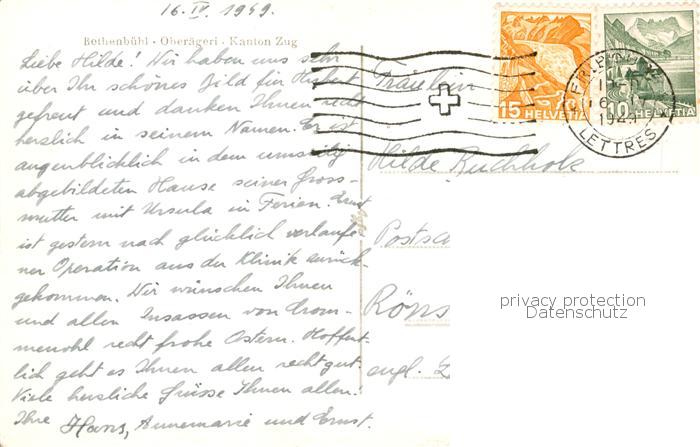 16. IV. 1949.
Bethenbühl - Oberägeri - Kanton Zug
Liebe Hilde! Wir haben uns sehr
über Ihr schönes Bild für Herbert
gefreut und danken Ihnen recht
herzlich in seinem Namen. Er ist
augenblicklich in dem umseitig
abgebildeten Hause seiner Gross-
mutter mit Ursula in Ferien. Ernst
ist gestern nach glücklich verlaufe-
ner Operation aus der Klinik zurück-
gekommen. Wir wünschen Ihnen
und allen Insassen von
recht frohe Ostern. Hoffent-
lich geht es Ihnen allen recht gut.
Viele herzliche Grüsse Ihnen allen!
Ihre Hans, Annemarie und Ernst.
15 HELVETIA
10 HELVETIA
LETTRES
Fräulein
Hilde Buchholz
Postsc
Röns
engl. Z
privacy protection
Datenschutz